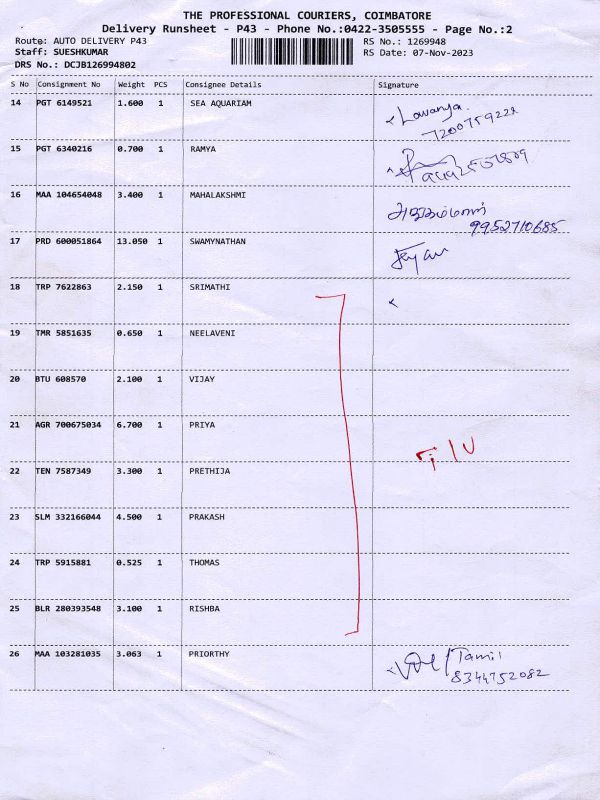 THE PROFESSIONAL COURIERS, COIMBATORE
Delivery Runsheet - P43 - Phone No.:0422-3505555 - Page No.:2
Route: AUTO DELIVERY P43 RS No.: 1269948
Staff: SUESHKUMAR RS Date: 07-Nov-2023
DRS No.: DCJB126994802
S No Consignment No Weight PCS Consignee Details Signature
14 PGT 6149521 1.600 1 SEA AQUARIAM Lavanya.
15 PGT 6340216 0.700 1 RAMYA
16 MAA 104654048 3.400 1 MAHALAKSHMI
9952710685
17 PRD 600051864 13.050 1 SWAMYNATHAN
18 TRP 7622863 2.150 1 SRIMATHI
19 TMR 5851635 0.650 1 NEELAVENI
20 BTU 608570 2.100 1 VIJAY
21 AGR 700675034 6.700 1 PRIYA
22 TEN 7587349 3.300 1 PRETHIJA
23 SLM 332166044 4.500 1 PRAKASH
24 TRP 5915881 0.525 1 THOMAS
25 BLR 280393548 3.100 1 RISHBA
26 MAA 103281035 3.063 1 PRIORTHY Tamil
8344752082